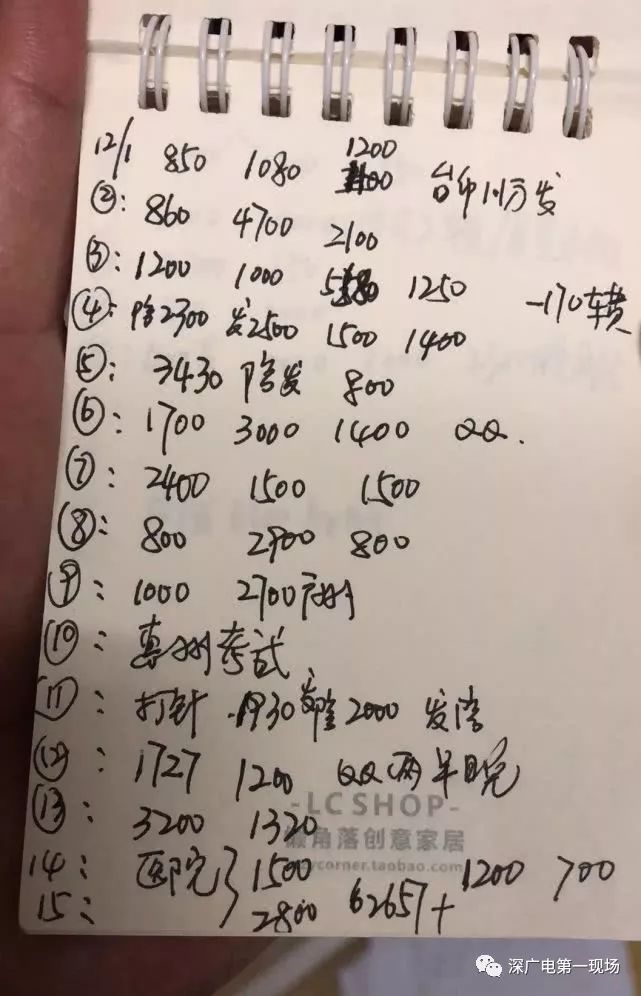 12/1 850 1080 1200 台币 发
②: 860 4700 2100
③: 1200 1000 1250 -170车费
④: 陪2300 发2500 1500 1400
⑤: 3430 陪发 800
⑥: 1700 3000 1400 QQ.
⑦: 2400 1500 1500
⑧: 800 2900 800
⑨: 1000 2700
⑩: 惠州考试
⑪: 打针 1930 2000 发
⑫: 1727 1200 QQ两年
⑬: 3200 1320
-LC SHOP-
懒角落创意家居
ycorner.taobao.com
14: 医院 1500 1200 700
15: 2800 62657+
深广电第一现场